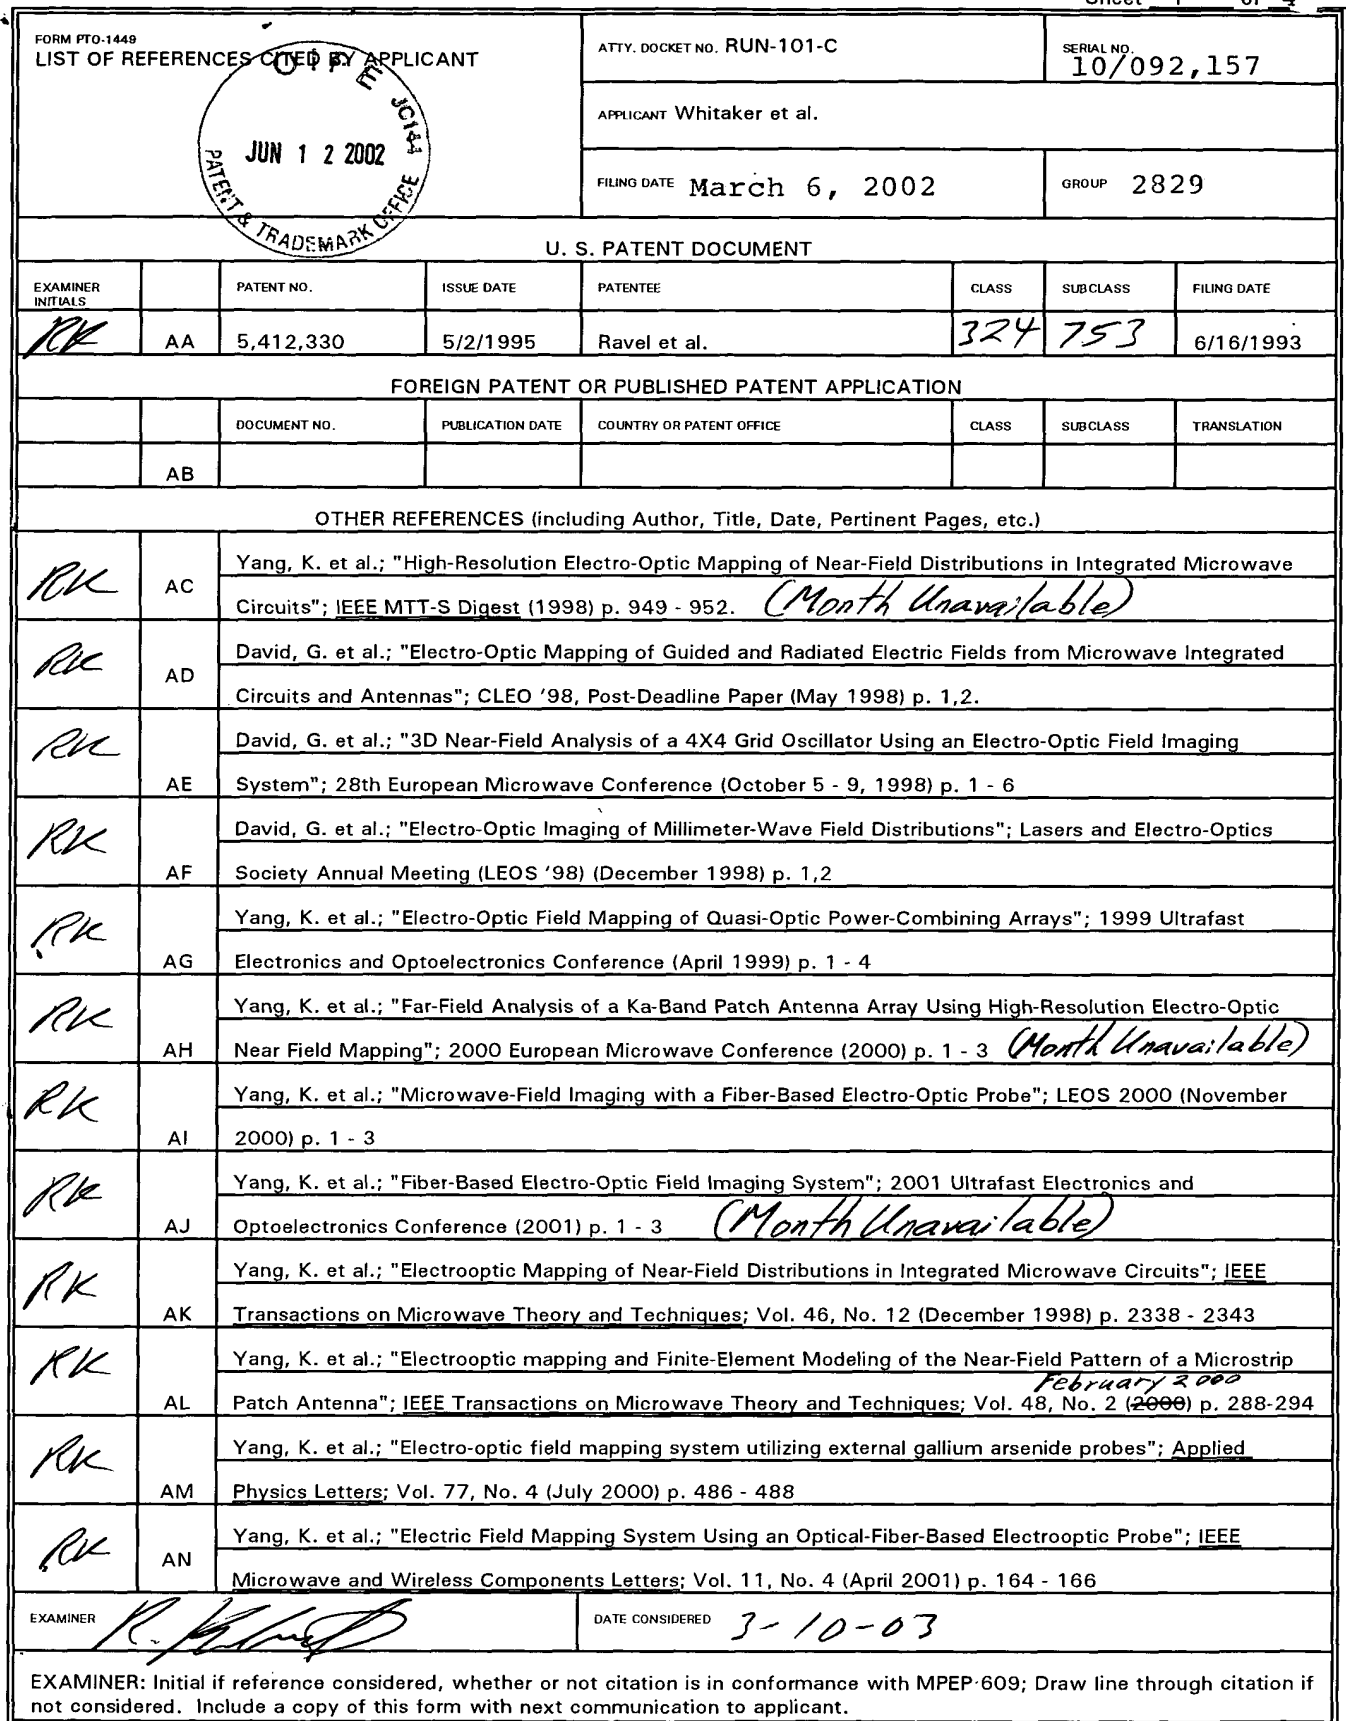 Sheet 1 of 4
FORM PTO-1449
LIST OF REFERENCES CITED BY APPLICANT
ATTY. DOCKET NO. RUN-101-C
SERIAL NO.
10/092,157
OIPE JC144
JUN 1 2 2002
PATENT & TRADEMARK OFFICE
APPLICANT Whitaker et al.
FILING DATE March 6, 2002
GROUP 2829
U. S. PATENT DOCUMENT
EXAMINER INITIALS PATENT NO. ISSUE DATE PATENTEE CLASS SUBCLASS FILING DATE
RK AA 5,412,330 5/2/1995 Ravel et al. 324 753 6/16/1993
FOREIGN PATENT OR PUBLISHED PATENT APPLICATION
DOCUMENT NO. PUBLICATION DATE COUNTRY OR PATENT OFFICE CLASS SUBCLASS TRANSLATION
AB
OTHER REFERENCES (including Author, Title, Date, Pertinent Pages, etc.)
RK AC Yang, K. et al.; "High-Resolution Electro-Optic Mapping of Near-Field Distributions in Integrated Microwave
Circuits"; IEEE MTT-S Digest (1998) p. 949 - 952. (Month Unavailable)
RK AD David, G. et al.; "Electro-Optic Mapping of Guided and Radiated Electric Fields from Microwave Integrated
Circuits and Antennas"; CLEO '98, Post-Deadline Paper (May 1998) p. 1,2.
RK AE David, G. et al.; "3D Near-Field Analysis of a 4X4 Grid Oscillator Using an Electro-Optic Field Imaging
System"; 28th European Microwave Conference (October 5 - 9, 1998) p. 1 - 6
RK AF David, G. et al.; "Electro-Optic Imaging of Millimeter-Wave Field Distributions"; Lasers and Electro-Optics
Society Annual Meeting (LEOS '98) (December 1998) p. 1,2
RK AG Yang, K. et al.; "Electro-Optic Field Mapping of Quasi-Optic Power-Combining Arrays"; 1999 Ultrafast
Electronics and Optoelectronics Conference (April 1999) p. 1 - 4
RK AH Yang, K. et al.; "Far-Field Analysis of a Ka-Band Patch Antenna Array Using High-Resolution Electro-Optic
Near Field Mapping"; 2000 European Microwave Conference (2000) p. 1 - 3 (Month Unavailable)
RK AI Yang, K. et al.; "Microwave-Field Imaging with a Fiber-Based Electro-Optic Probe"; LEOS 2000 (November
2000) p. 1 - 3
RK AJ Yang, K. et al.; "Fiber-Based Electro-Optic Field Imaging System"; 2001 Ultrafast Electronics and
Optoelectronics Conference (2001) p. 1 - 3 (Month Unavailable)
RK AK Yang, K. et al.; "Electrooptic Mapping of Near-Field Distributions in Integrated Microwave Circuits"; IEEE
Transactions on Microwave Theory and Techniques; Vol. 46, No. 12 (December 1998) p. 2338 - 2343
RK AL Yang, K. et al.; "Electrooptic mapping and Finite-Element Modeling of the Near-Field Pattern of a Microstrip
February 2000
Patch Antenna"; IEEE Transactions on Microwave Theory and Techniques; Vol. 48, No. 2 (2000) p. 288-294
RK AM Yang, K. et al.; "Electro-optic field mapping system utilizing external gallium arsenide probes"; Applied
Physics Letters; Vol. 77, No. 4 (July 2000) p. 486 - 488
RK AN Yang, K. et al.; "Electric Field Mapping System Using an Optical-Fiber-Based Electrooptic Probe"; IEEE
Microwave and Wireless Components Letters; Vol. 11, No. 4 (April 2001) p. 164 - 166
EXAMINER R.
DATE CONSIDERED 3-10-03
EXAMINER: Initial if reference considered, whether or not citation is in conformance with MPEP 609; Draw line through citation if
not considered. Include a copy of this form with next communication to applicant.